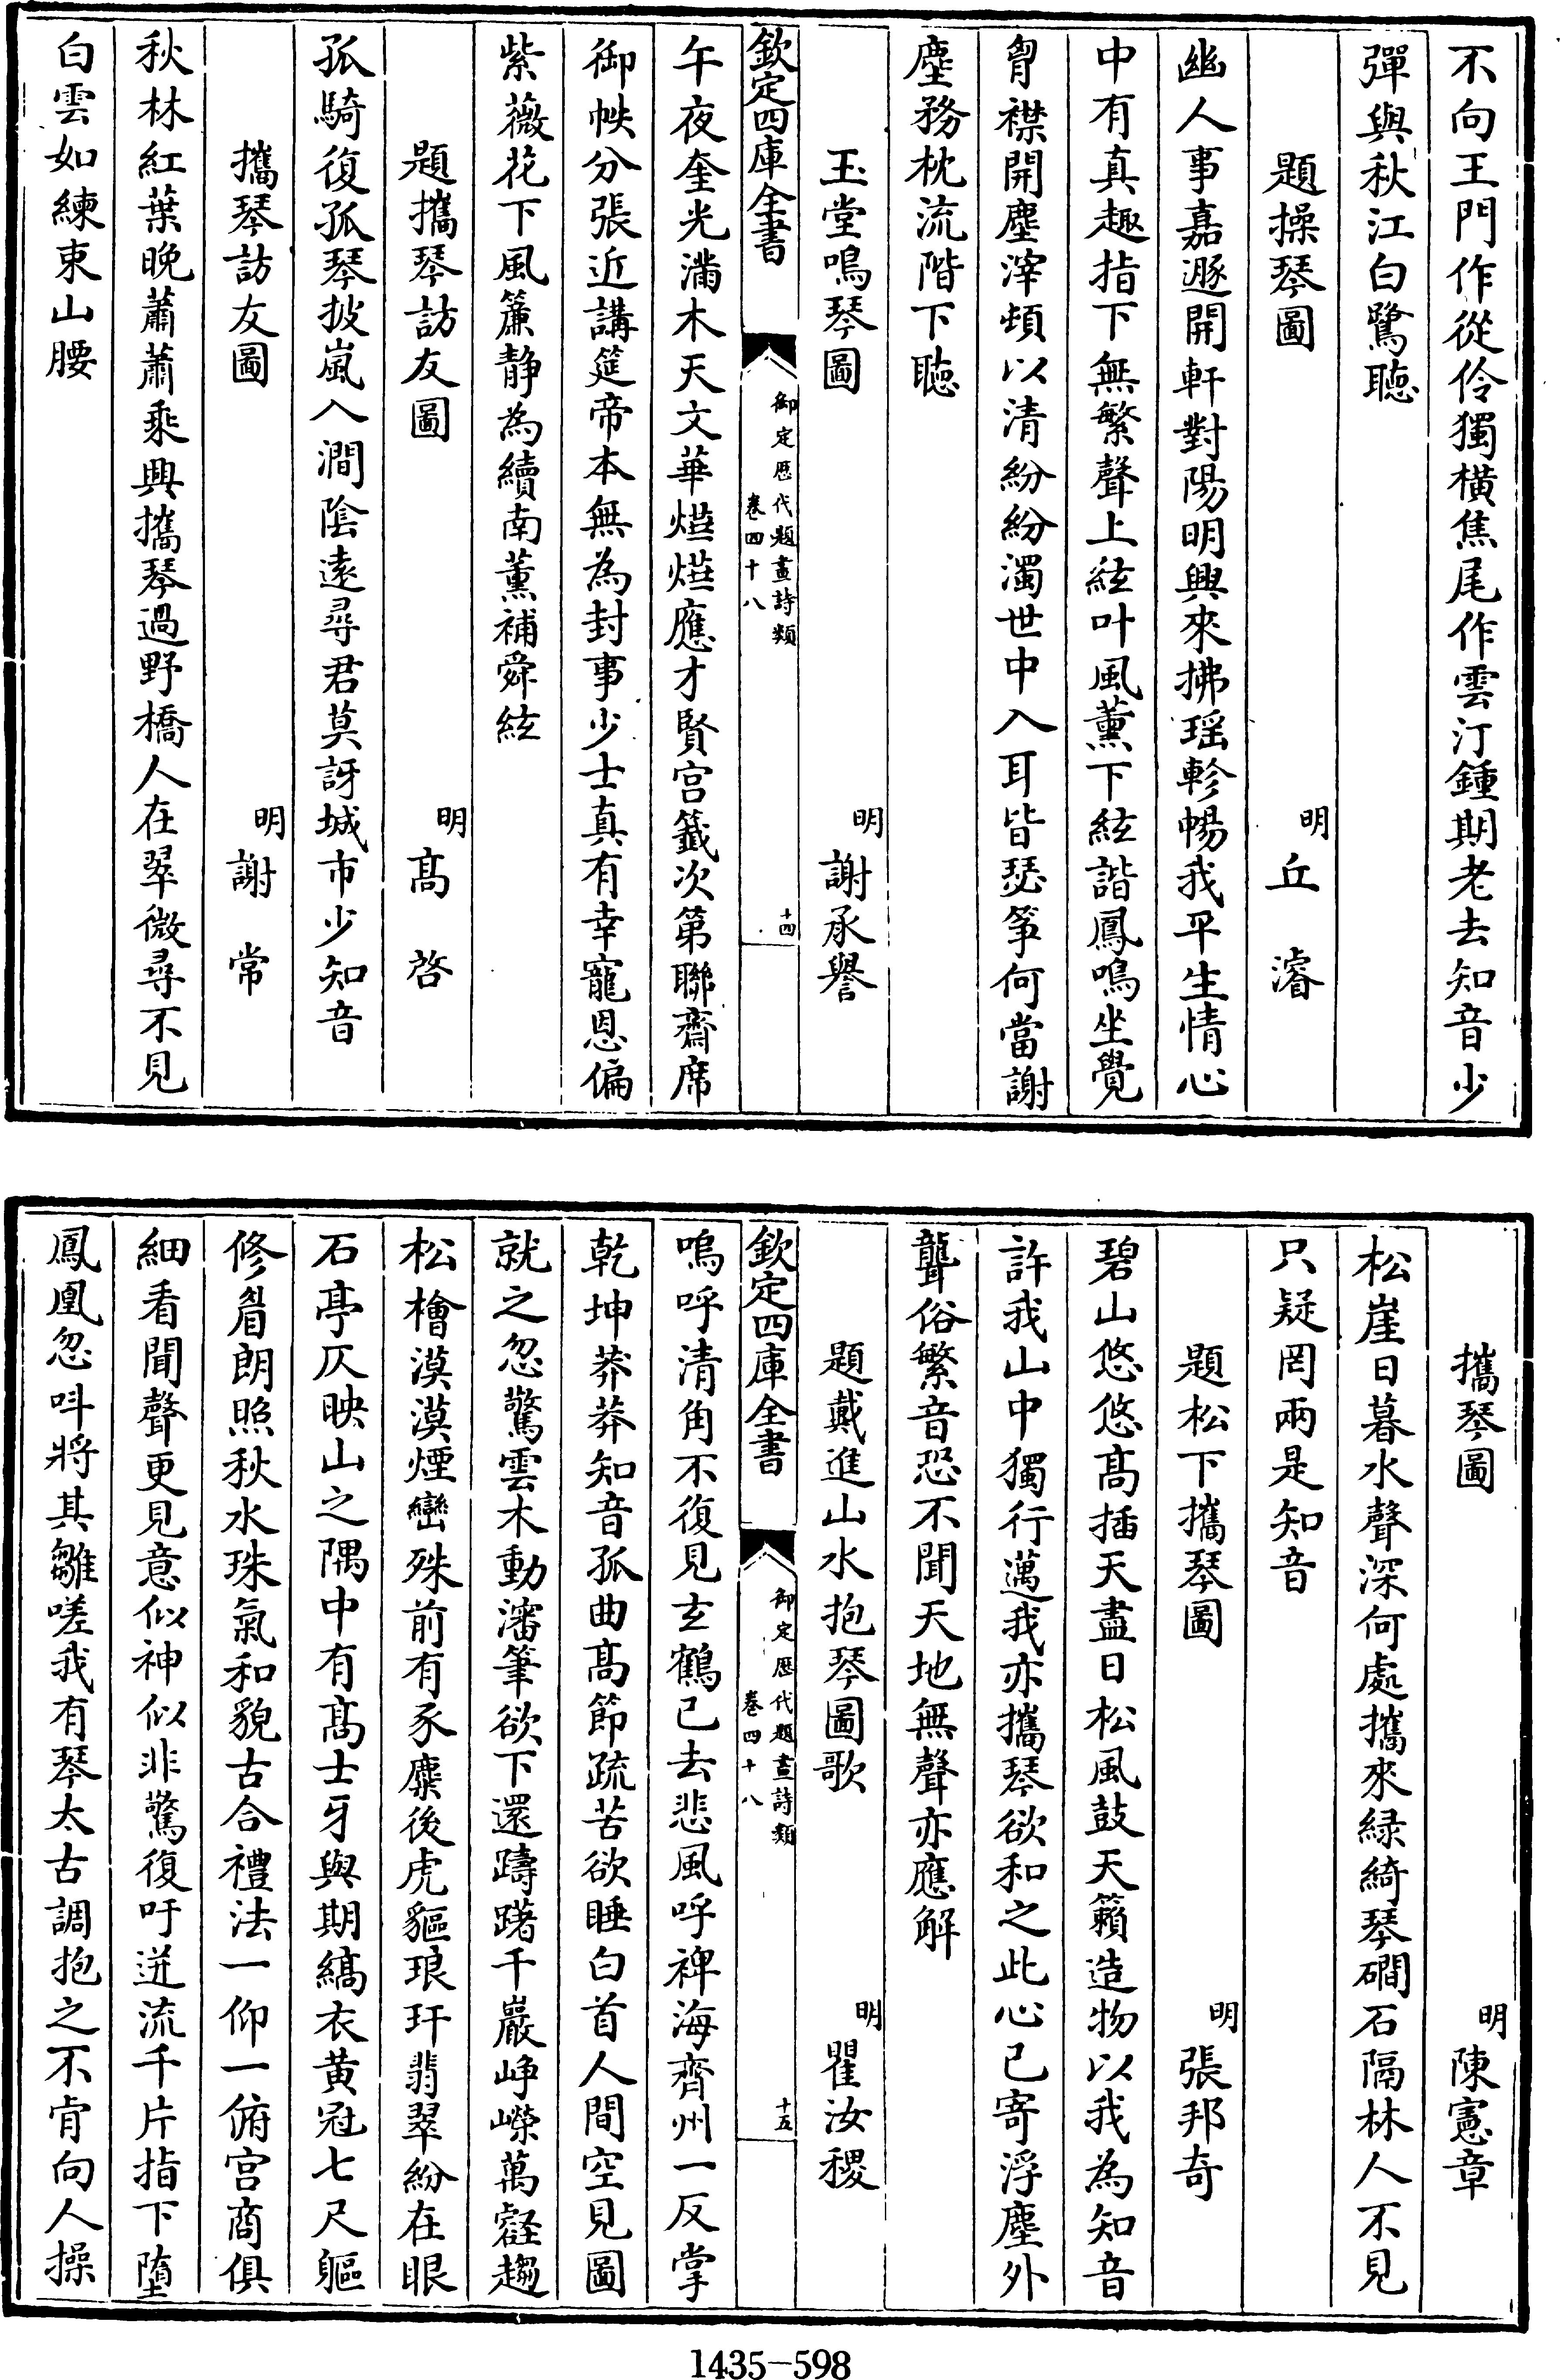 不向王門作從伶獨橫焦尾作雲汀鍾期老去知音少
彈與秋江白鷺聽
題操琴圖
明
丘濬
幽人事嘉遯開軒對陽明興來拂瑶軫暢我平生情心
中有真趣指下無繁聲上絃叶風薰下絃諧鳳鳴坐覺
胷襟開塵滓頓以清紛紛濁世中入耳皆瑟筝何當謝
塵務枕流階下聽
玉堂鳴琴圖
明
謝承譽
欽定四庫全書
御定歴代題畫詩類
卷四十八
十四
午夜奎光滿木天文華㷼㷼應才賢宫籖次第聯齋席
御帙分張近講筵帝本無為封事少士真有幸寵恩偏
紫薇花下風簾靜為續南薰補舜絃
題攜琴訪友圖
明
髙啓
孤騎復孤琴披嵐入澗陰逺尋君莫訝城市少知音
攜琴訪友圖
明
謝常
秋林紅葉晚蕭蕭乘興攜琴過野橋人在翠微尋不見
白雲如練束山腰
攜琴圖
明
陳憲章
松崖日暮水聲深何處攜來緑綺琴磵石隔林人不見
只疑罔兩是知音
題松下攜琴圖
明
張邦奇
碧山悠悠髙插天盡日松風鼓天籟造物以我為知音
許我山中獨行邁我亦攜琴欲和之此心已寄浮塵外
聾俗繁音恐不聞天地無聲亦應解
題戴進山水抱琴圖歌
明
瞿汝稷
欽定四庫全書
御定歴代題畫詩類
卷四十八
十五
嗚呼清角不復見玄鶴已去悲風呼裨海齊州一反掌
乾坤莽莽知音孤曲髙節疏苦欲睡白首人間空見圖
就之忽驚雲木動瀋筆欲下還躊躇千巖崢嶸萬壑趨
松檜漠漠煙巒殊前有豕麋後虎貙琅玕翡翠紛在眼
石亭仄映山之隅中有髙士牙與期縞衣黄冠七尺軀
修眉朗照秋水珠氣和貌古合禮法一仰一俯宫商俱
細看聞聲更見意似神似非驚復吁迸流千片指下墮
鳳凰忽呌將其雛嗟我有琴太古調抱之不肯向人操
1435-598